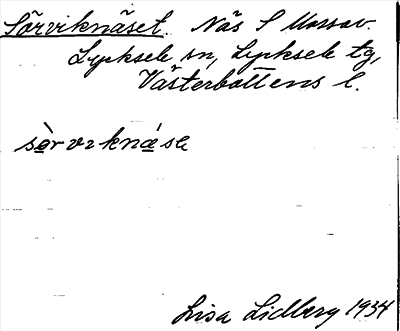 Sörviknäset. Näs S
Lycksele sn, Lycksele tg,
Västerbottens l.
sè̱rviknǽsa
Lisa Lidberg 1934